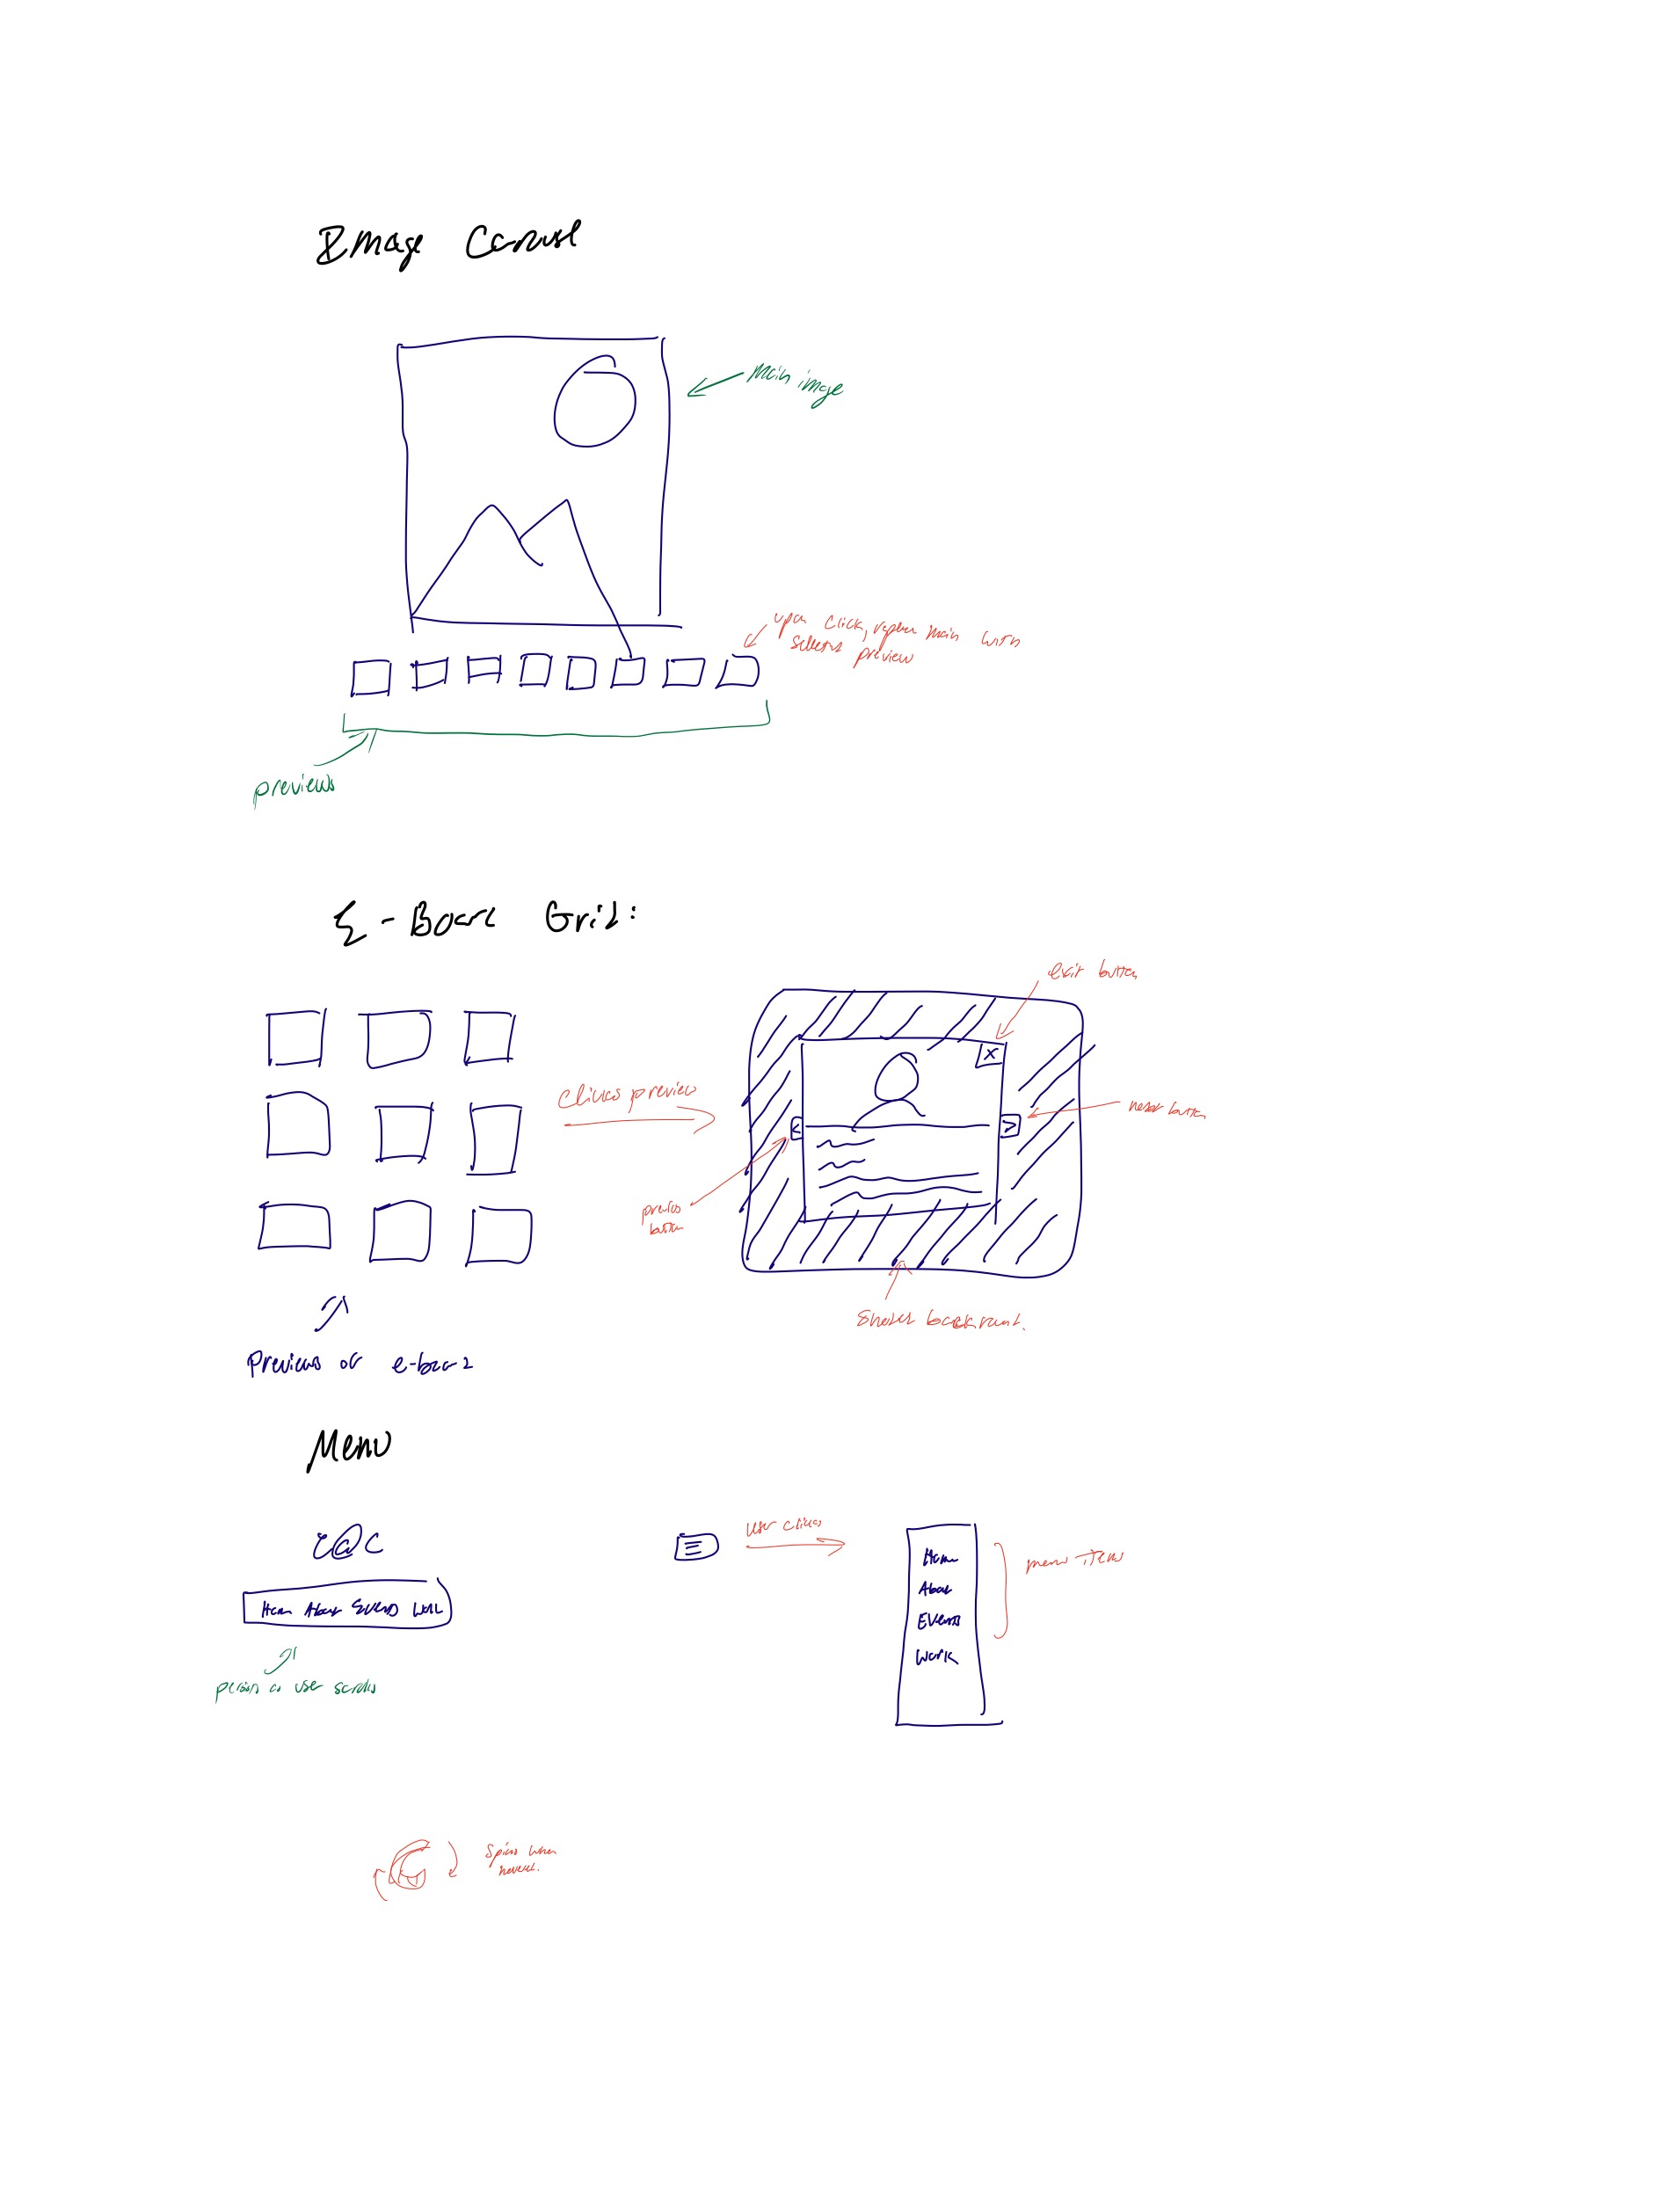 Image Carousel
main image
upon click, replace main with
selected preview
previews
E-Board Grid:
exit button
clicks preview
<
X
>
next button
previous
button
shaded background.
Previews of e-board
Menu
Home About Events Work
persists as user scrolls
user clicks
Home
About
Events
Work
menu items
Spins when
hovered.